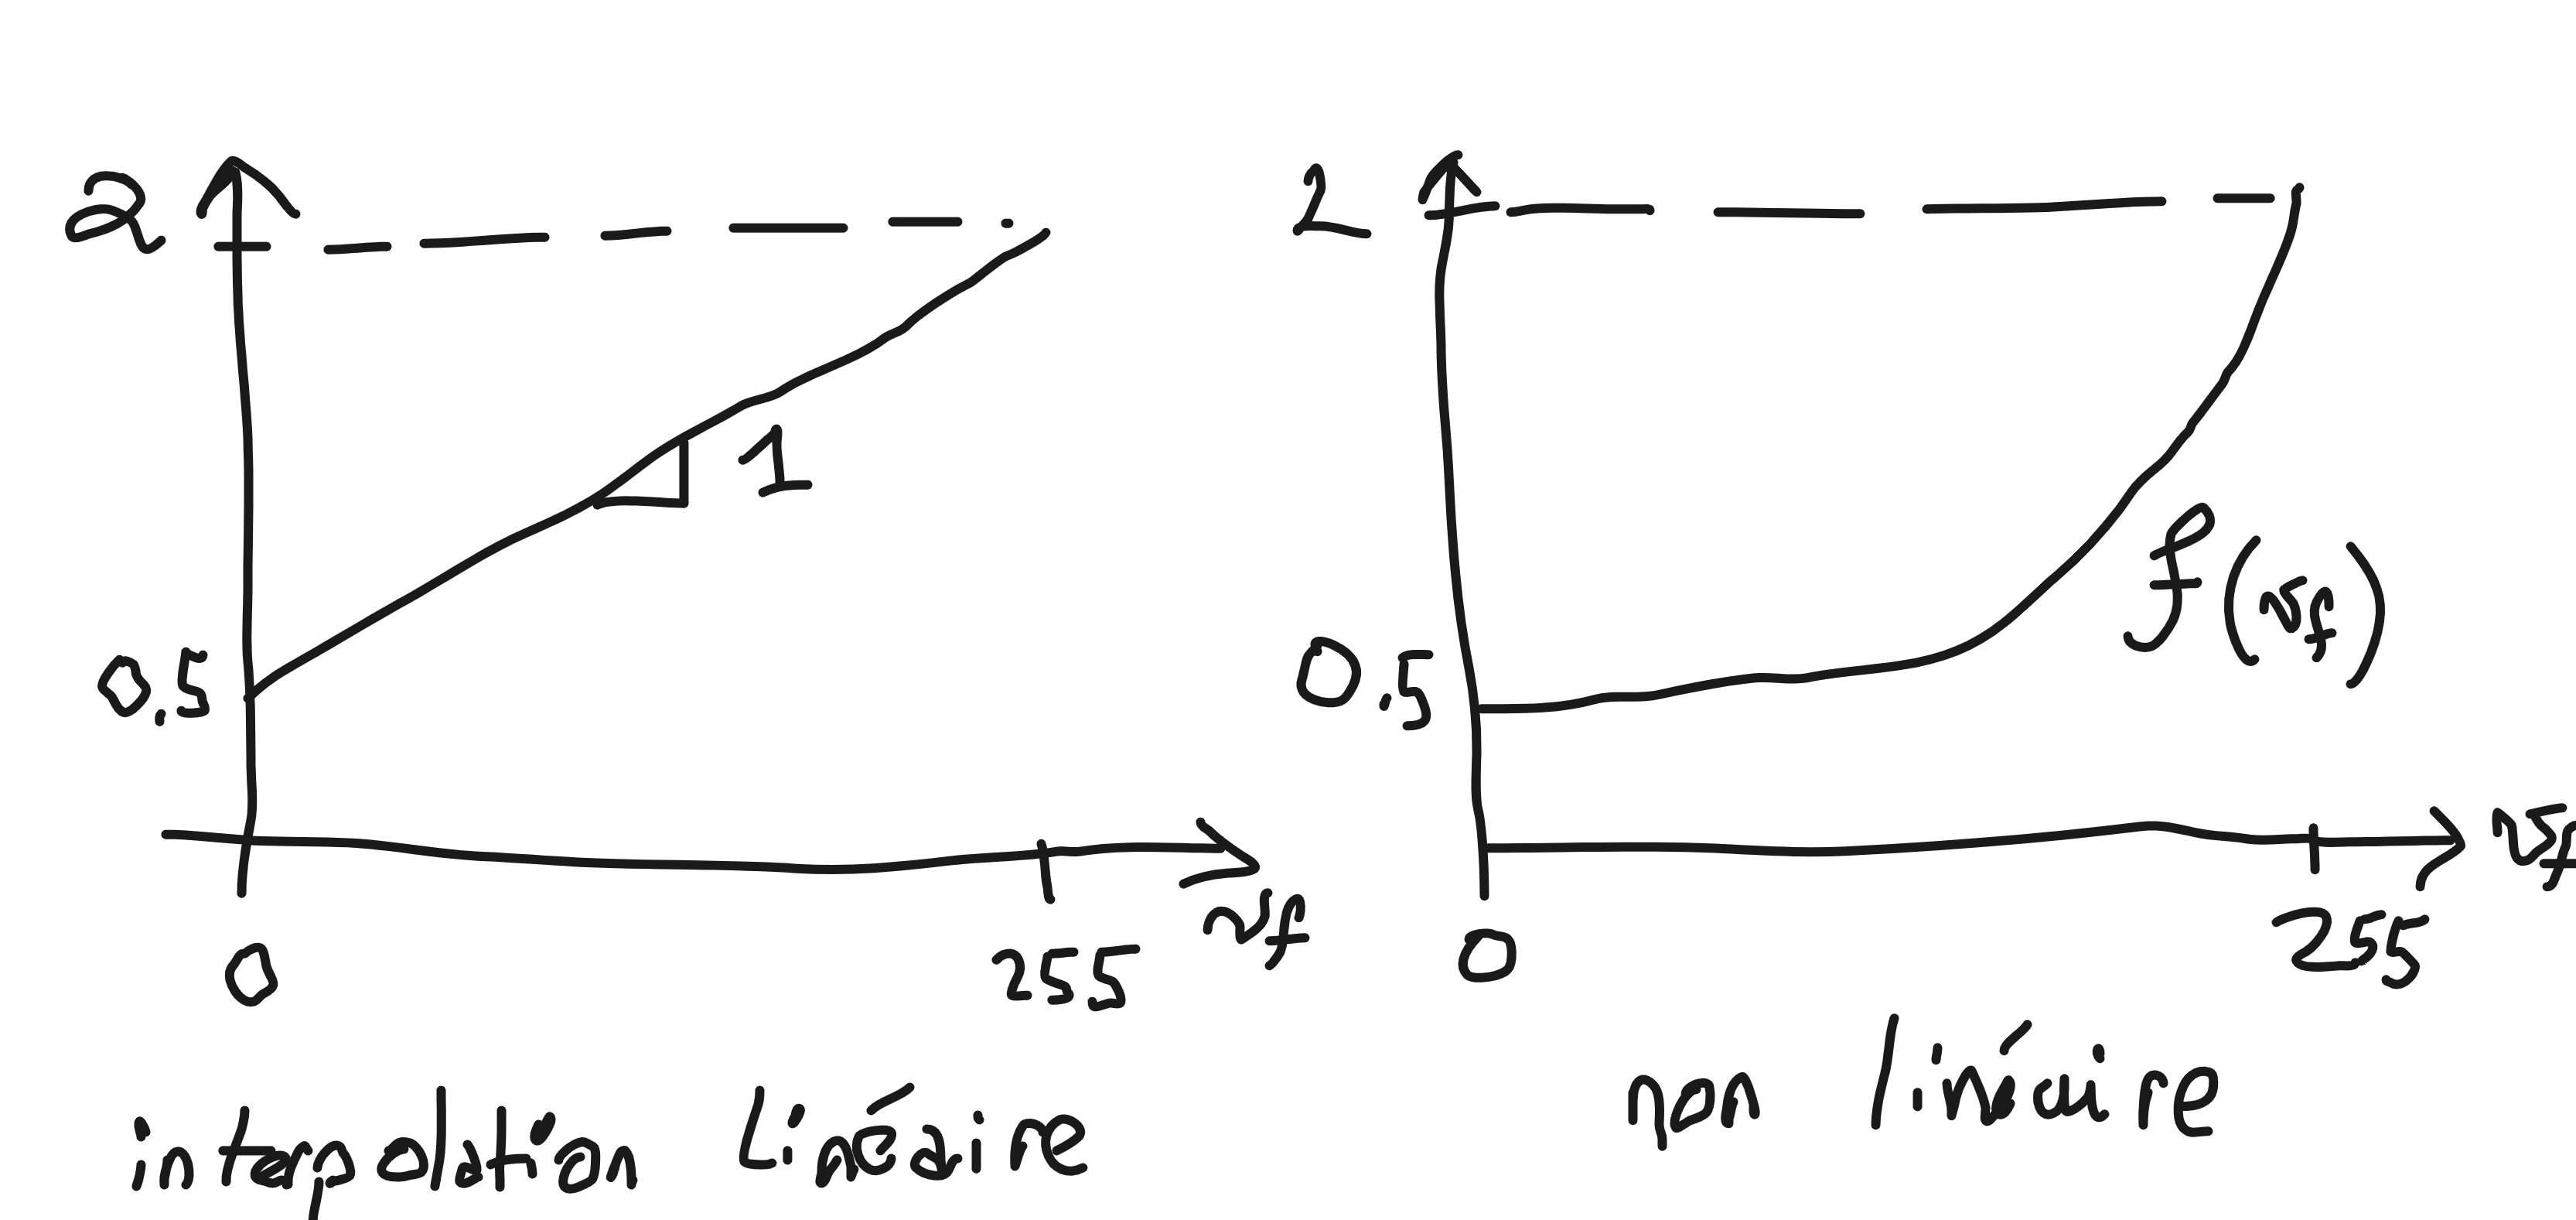 2
0.5
1
0
255
vf
interpolation Linéaire
2
0.5
f(vf)
0
255
vf
non linéaire